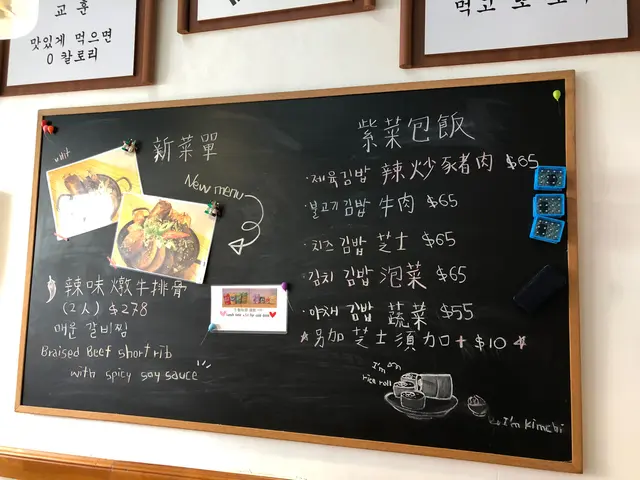 교 훈
맛있게 먹으면
0 칼로리
新菜單
New menu
辣味燉牛排骨
(2人) $278
매운 갈비찜
Braised Beef short rib
with spicy soy sauce
紫菜包飯
·제육김밥 辣炒豬肉 $65
·불고기 김밥 牛肉 $65
·치즈 김밥 芝士 $65
·김치 김밥 泡菜 $65
·야채 김밥 蔬菜 $55
★另加芝士須加+$10★
I'm
rice roll
I'm kimchi